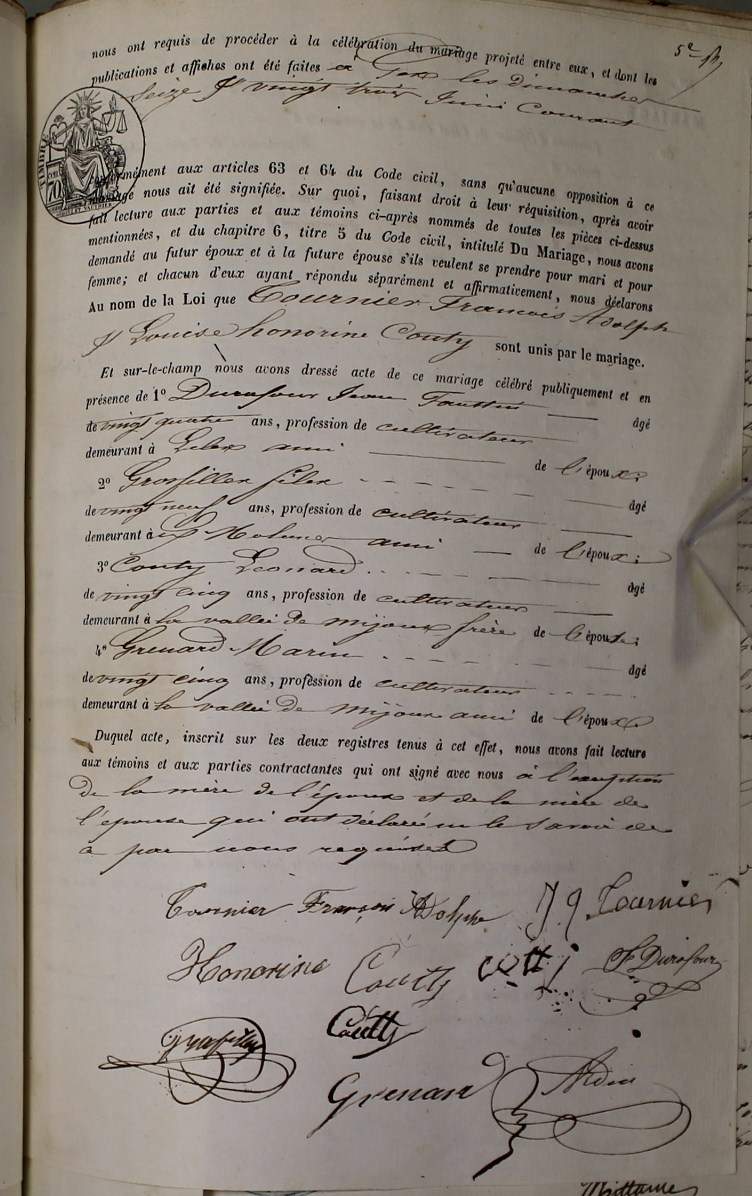 5e
nous ont requis de procéder à la célébration du mariage projeté entre eux, et dont les
publications et affiches ont été faites à Gex les Dimanches
Seize & vingt trois Juin Courant
TIMBRE
70
conformément aux articles 63 et 64 du Code civil, sans qu'aucune opposition à ce
mariage nous ait été signifiée. Sur quoi, faisant droit à leur réquisition, après avoir
fait lecture aux parties et aux témoins ci-après nommés de toutes les pièces ci-dessus
mentionnées, et du chapitre 6, titre 5 du Code civil, intitulé Du Mariage, nous avons
demandé au futur époux et à la future épouse s'ils veulent se prendre pour mari et pour
femme; et chacun d'eux ayant répondu séparément et affirmativement, nous déclarons
Au nom de la Loi que Tournier François Adolphe
& Louise honorine Couty sont unis par le mariage.
Et sur-le-champ nous avons dressé acte de ce mariage célébré publiquement et en
présence de 1º Durafour Jean Faustin âgé
de vingt quatre ans, profession de cultivateur
demeurant à Lelex ami de l'époux;
2º Grosfillex félix âgé
de vingt neuf ans, profession de cultivateur
demeurant à ami de l'époux;
3º Couty Léonard âgé
de vingt cinq ans, profession de cultivateur
demeurant à la vallée de mijoux frère de l'épouse;
4º Grenard Marin âgé
de vingt cinq ans, profession de cultivateur
demeurant à la vallée de mijoux ami de l'époux
Duquel acte, inscrit sur les deux registres tenus à cet effet, nous avons fait lecture
aux témoins et aux parties contractantes qui ont signé avec nous à l'exception
de la mère de l'époux et de la mère de
l'épouse qui ont déclaré ne le savoir de
ce par nous requises
Tournier François Adolphe J Tournier
Honorine Coutty cotti JF Durafour
Coutty
Grenard